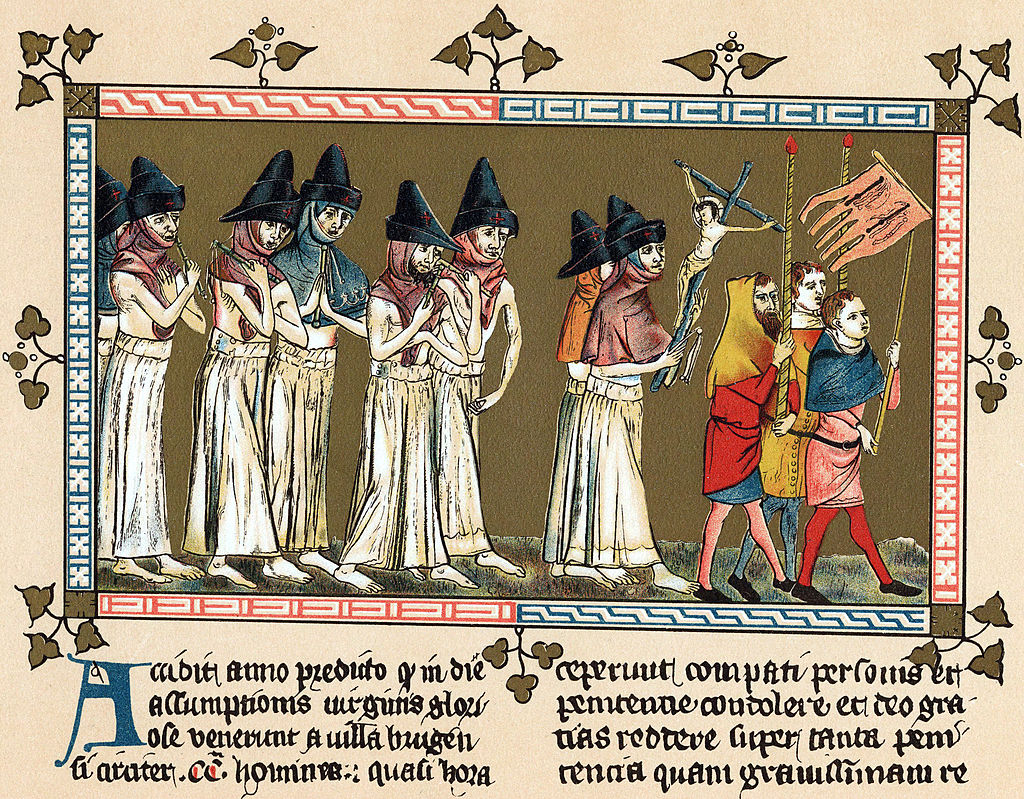 Accidit anno predicto q in die
assumptionis uirginis glori
ose venerunt a uilla brugen
si circiter .CC. homines quasi hora
ceperunt compati personis et
penitentie condolere et deo gra
tias reddere super tanta peni
tencia quam grauissimam re